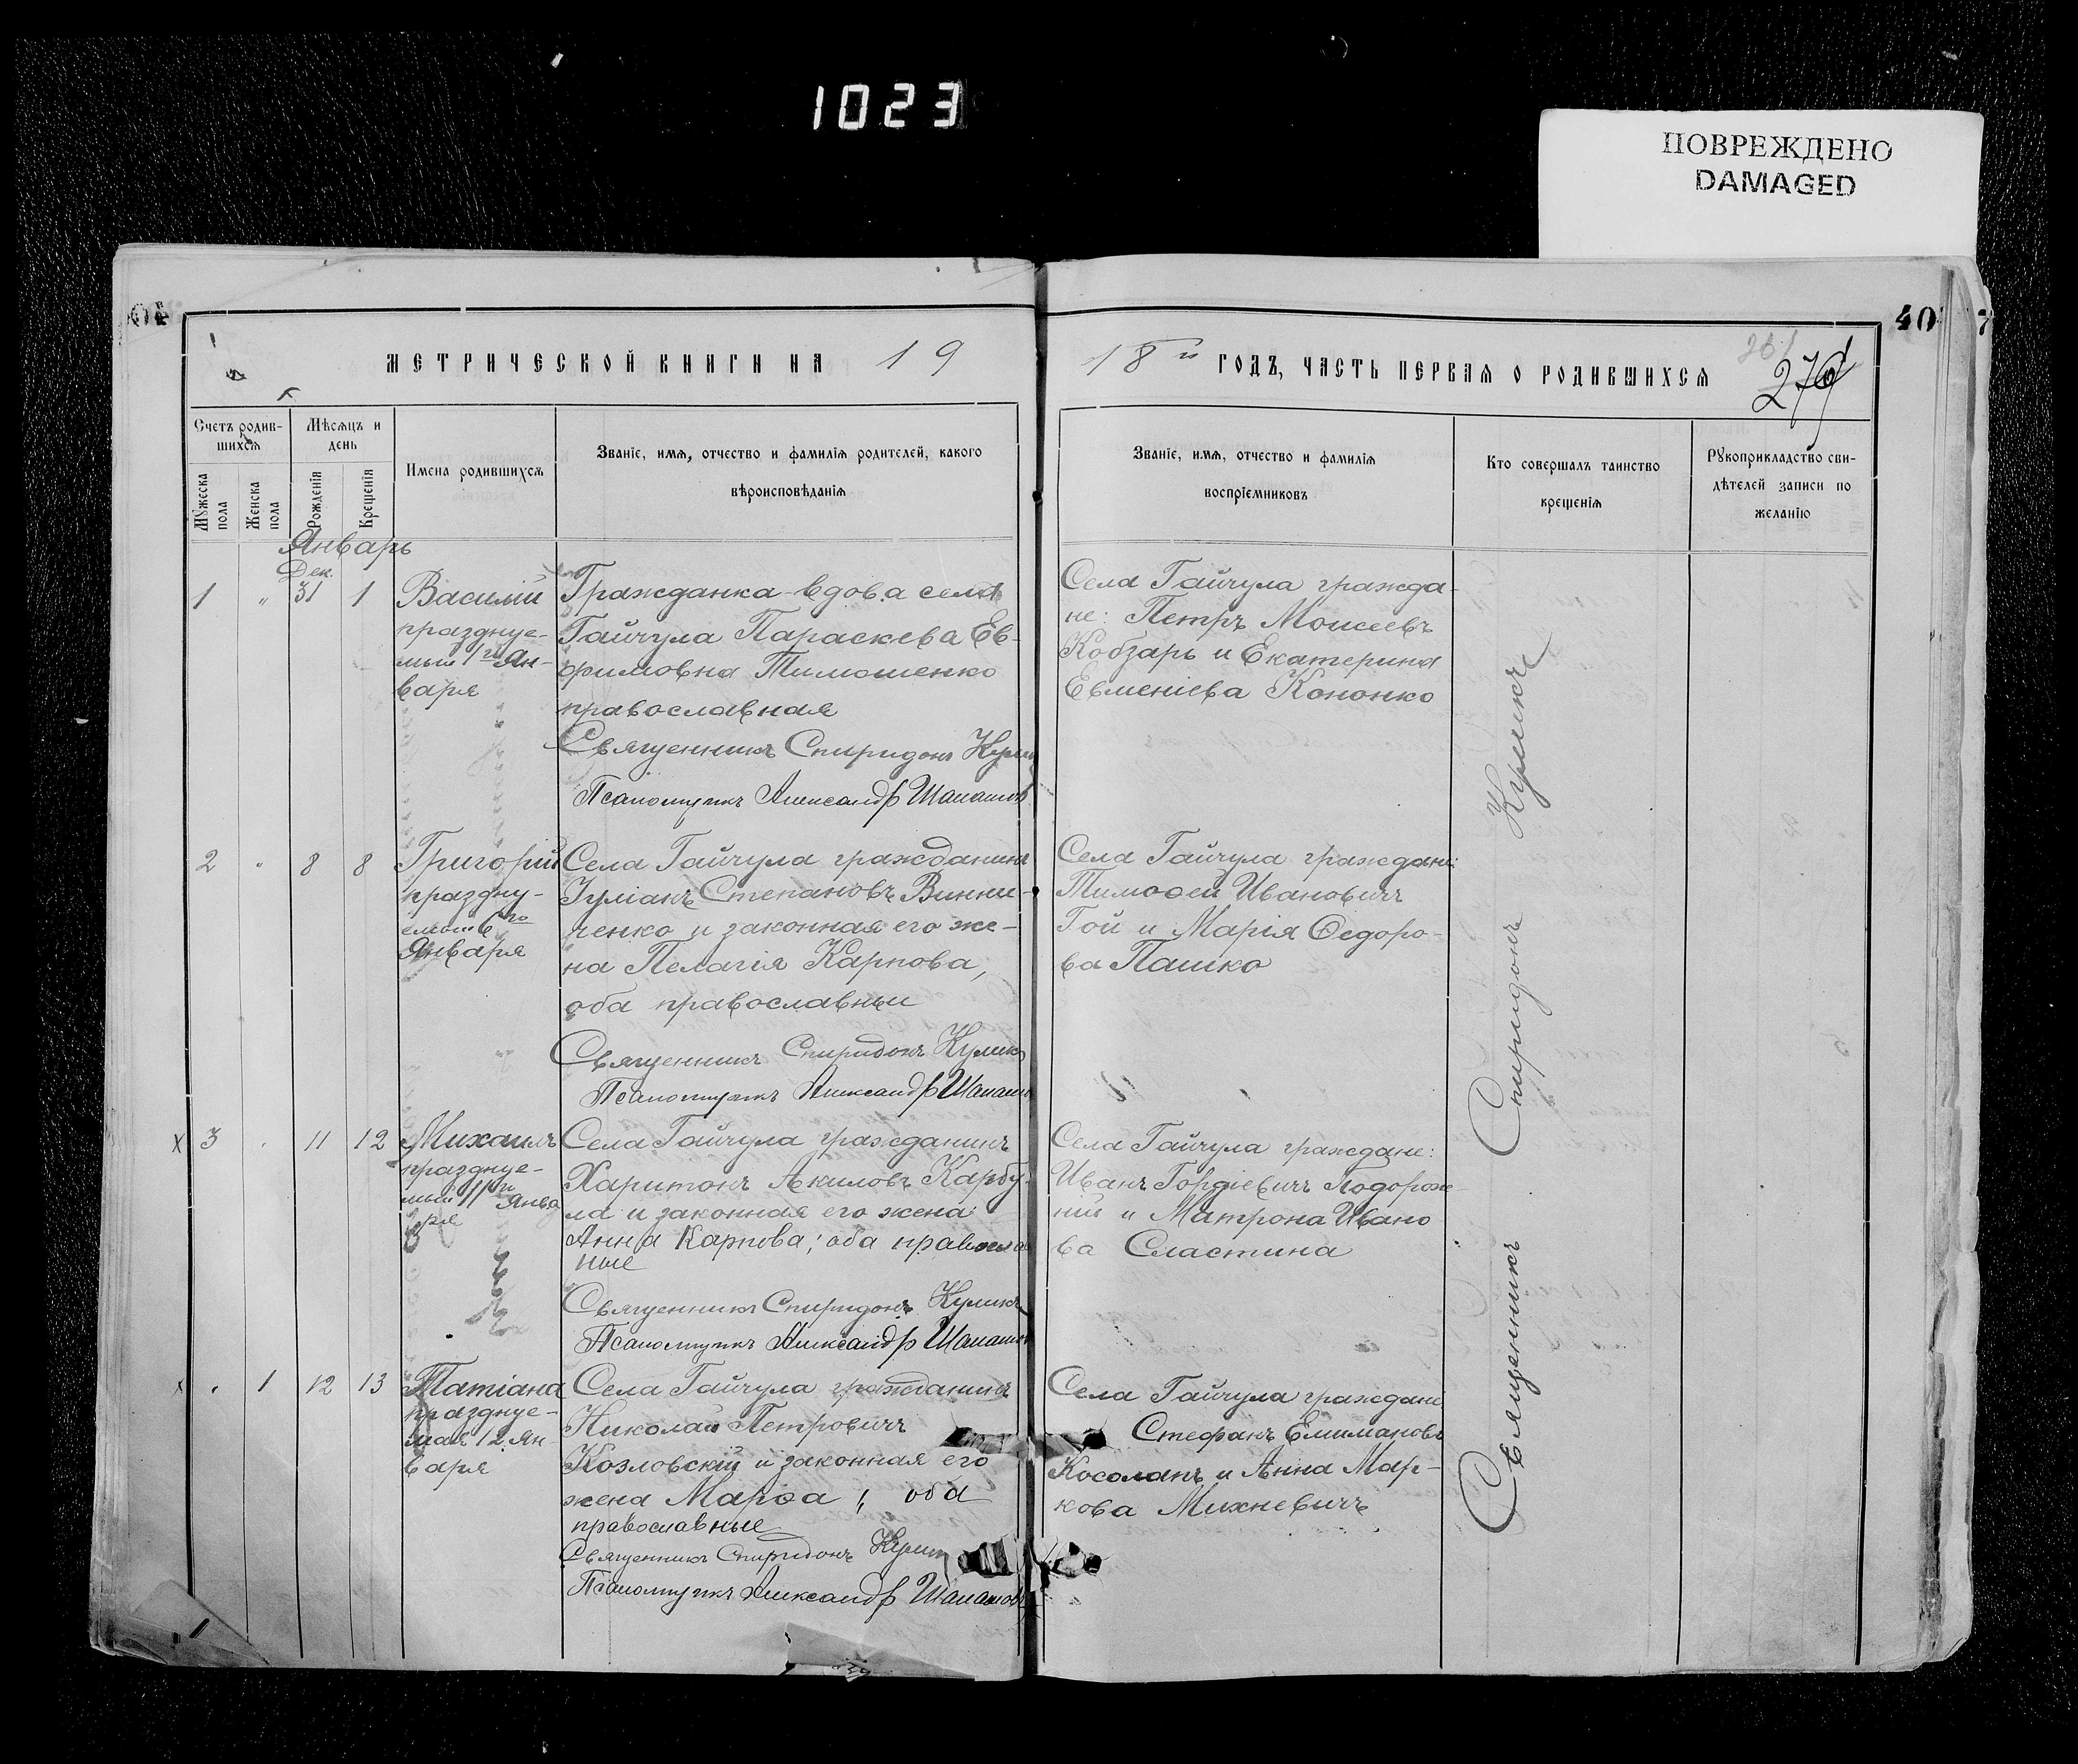 1023
ПОВРЕЖДЕНО
DAMAGED
407
МЕТРИЧЕСКОЙ КНИГИ НА 19
18й ГОДЪ, ЧАСТЬ ПЕРВАЯ О РОДИВШИХСЯ
Счетъ родив-
шихся
Мужеска
пола
Женска
пола
Мѣсяцъ и
день
Рожденія
Крещенія
Имена родившихся
Званіе, имя, отчество и фамилія родителей, какого
вѣроисповѣданія
Званіе, имя, отчество и фамилія
воспріемниковъ
Кто совершалъ таинство
крещенія
Рукоприкладство сви-
дѣтелей записи по
желанію
Январь
Дек.
1 " 31 1
Василій
празднуе-
мый 1го Ян-
варя
Гражданка-вдова села
Гайчула Параскева Ев-
фимовна Тимошенко
православная
Священникъ Спиридонъ Кулик
Псаломщикъ Александр
Села Гайчула гражда-
не: Петръ Моисеевъ
Кобзарь и Екатерина
Евменіева Кононко
2 " 8 8
Григорій
праздну-
емый
Января
Села Гайчула гражданинъ
Іуліанъ Степановъ Винни-
ченко и законная его же-
на Пелагія Карпова,
оба православныи
Священникъ Спиридонъ Куликъ
Псаломщикъ Александр
Села Гайчула граждане:
Тимоѳей Ивановичъ
Гой и Марія Ѳедоро-
ва Пашко
х 3 " 11 12
Михаилъ
празднуе-
мый 11го Янва
ря
Села Гайчула гражданинъ
Харитонъ Акиловъ Карбу-
ла и законная его жена:
Анна Карпова; оба православ
ные
Священникъ Спиридонъ Куликъ
Псаломщикъ Александр
Села Гайчула граждане:
Иванъ Гордіевичъ Подорож-
ній и Матрона Ивано
ва Сластина
х " 1 12 13
Татіана
празднуе-
мая 12 Ян-
варя
Села Гайчула гражданинъ
Николай Петровичъ
Козловскій и законная его
жена Марѳа , оба
православные
Священникъ Спиридонъ Кулик
Псаломщикъ Александр
Села Гайчула граждане
Стефанъ
и Анна Мар-
кова Михневичъ
Священникъ Спиридонъ Куликъ